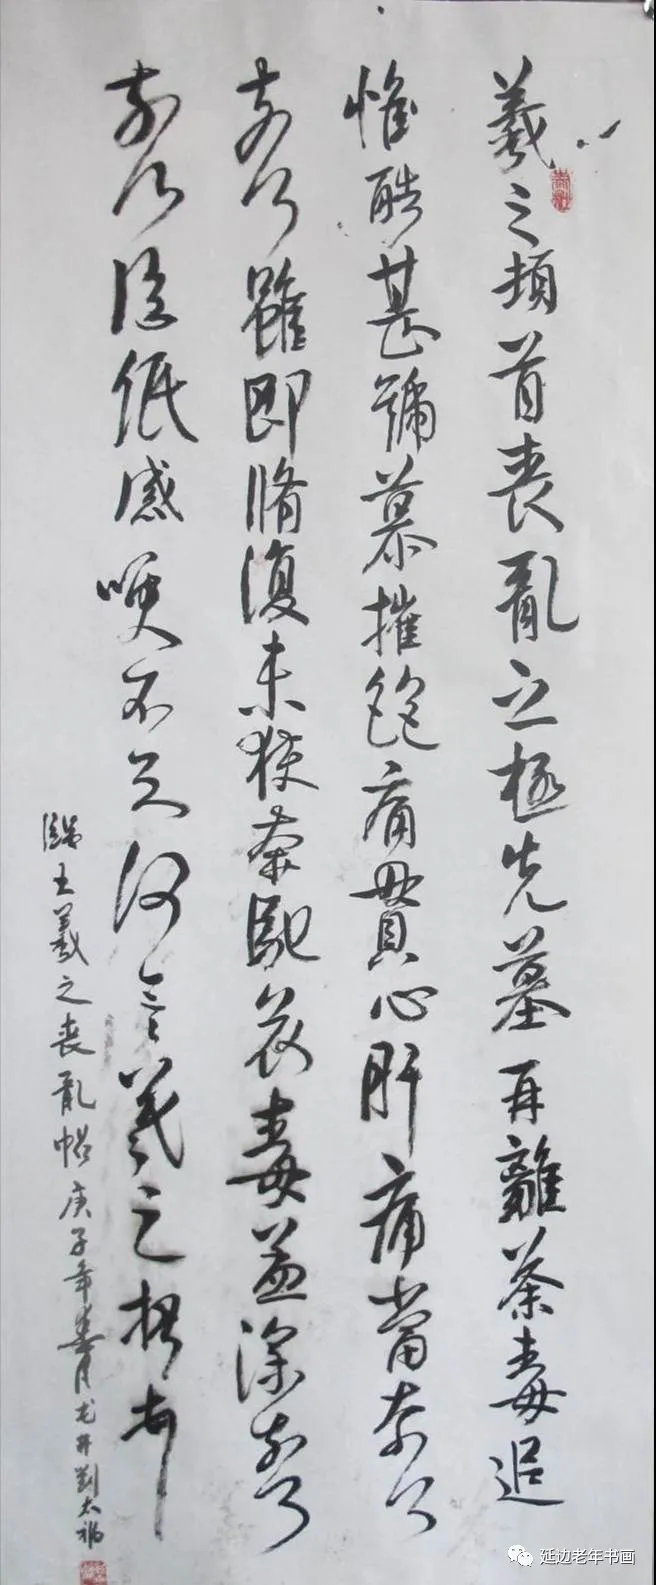 羲之頓首喪亂之極先墓再離荼毒追
惟酷甚號慕摧絶痛貫心肝痛當奈何
奈何雖即脩復未獲奔馳哀毒益深奈何
奈何臨紙感哽不知何言羲之頓首
臨王羲之喪亂帖庚子年春月龙井劉太
延边老年书画